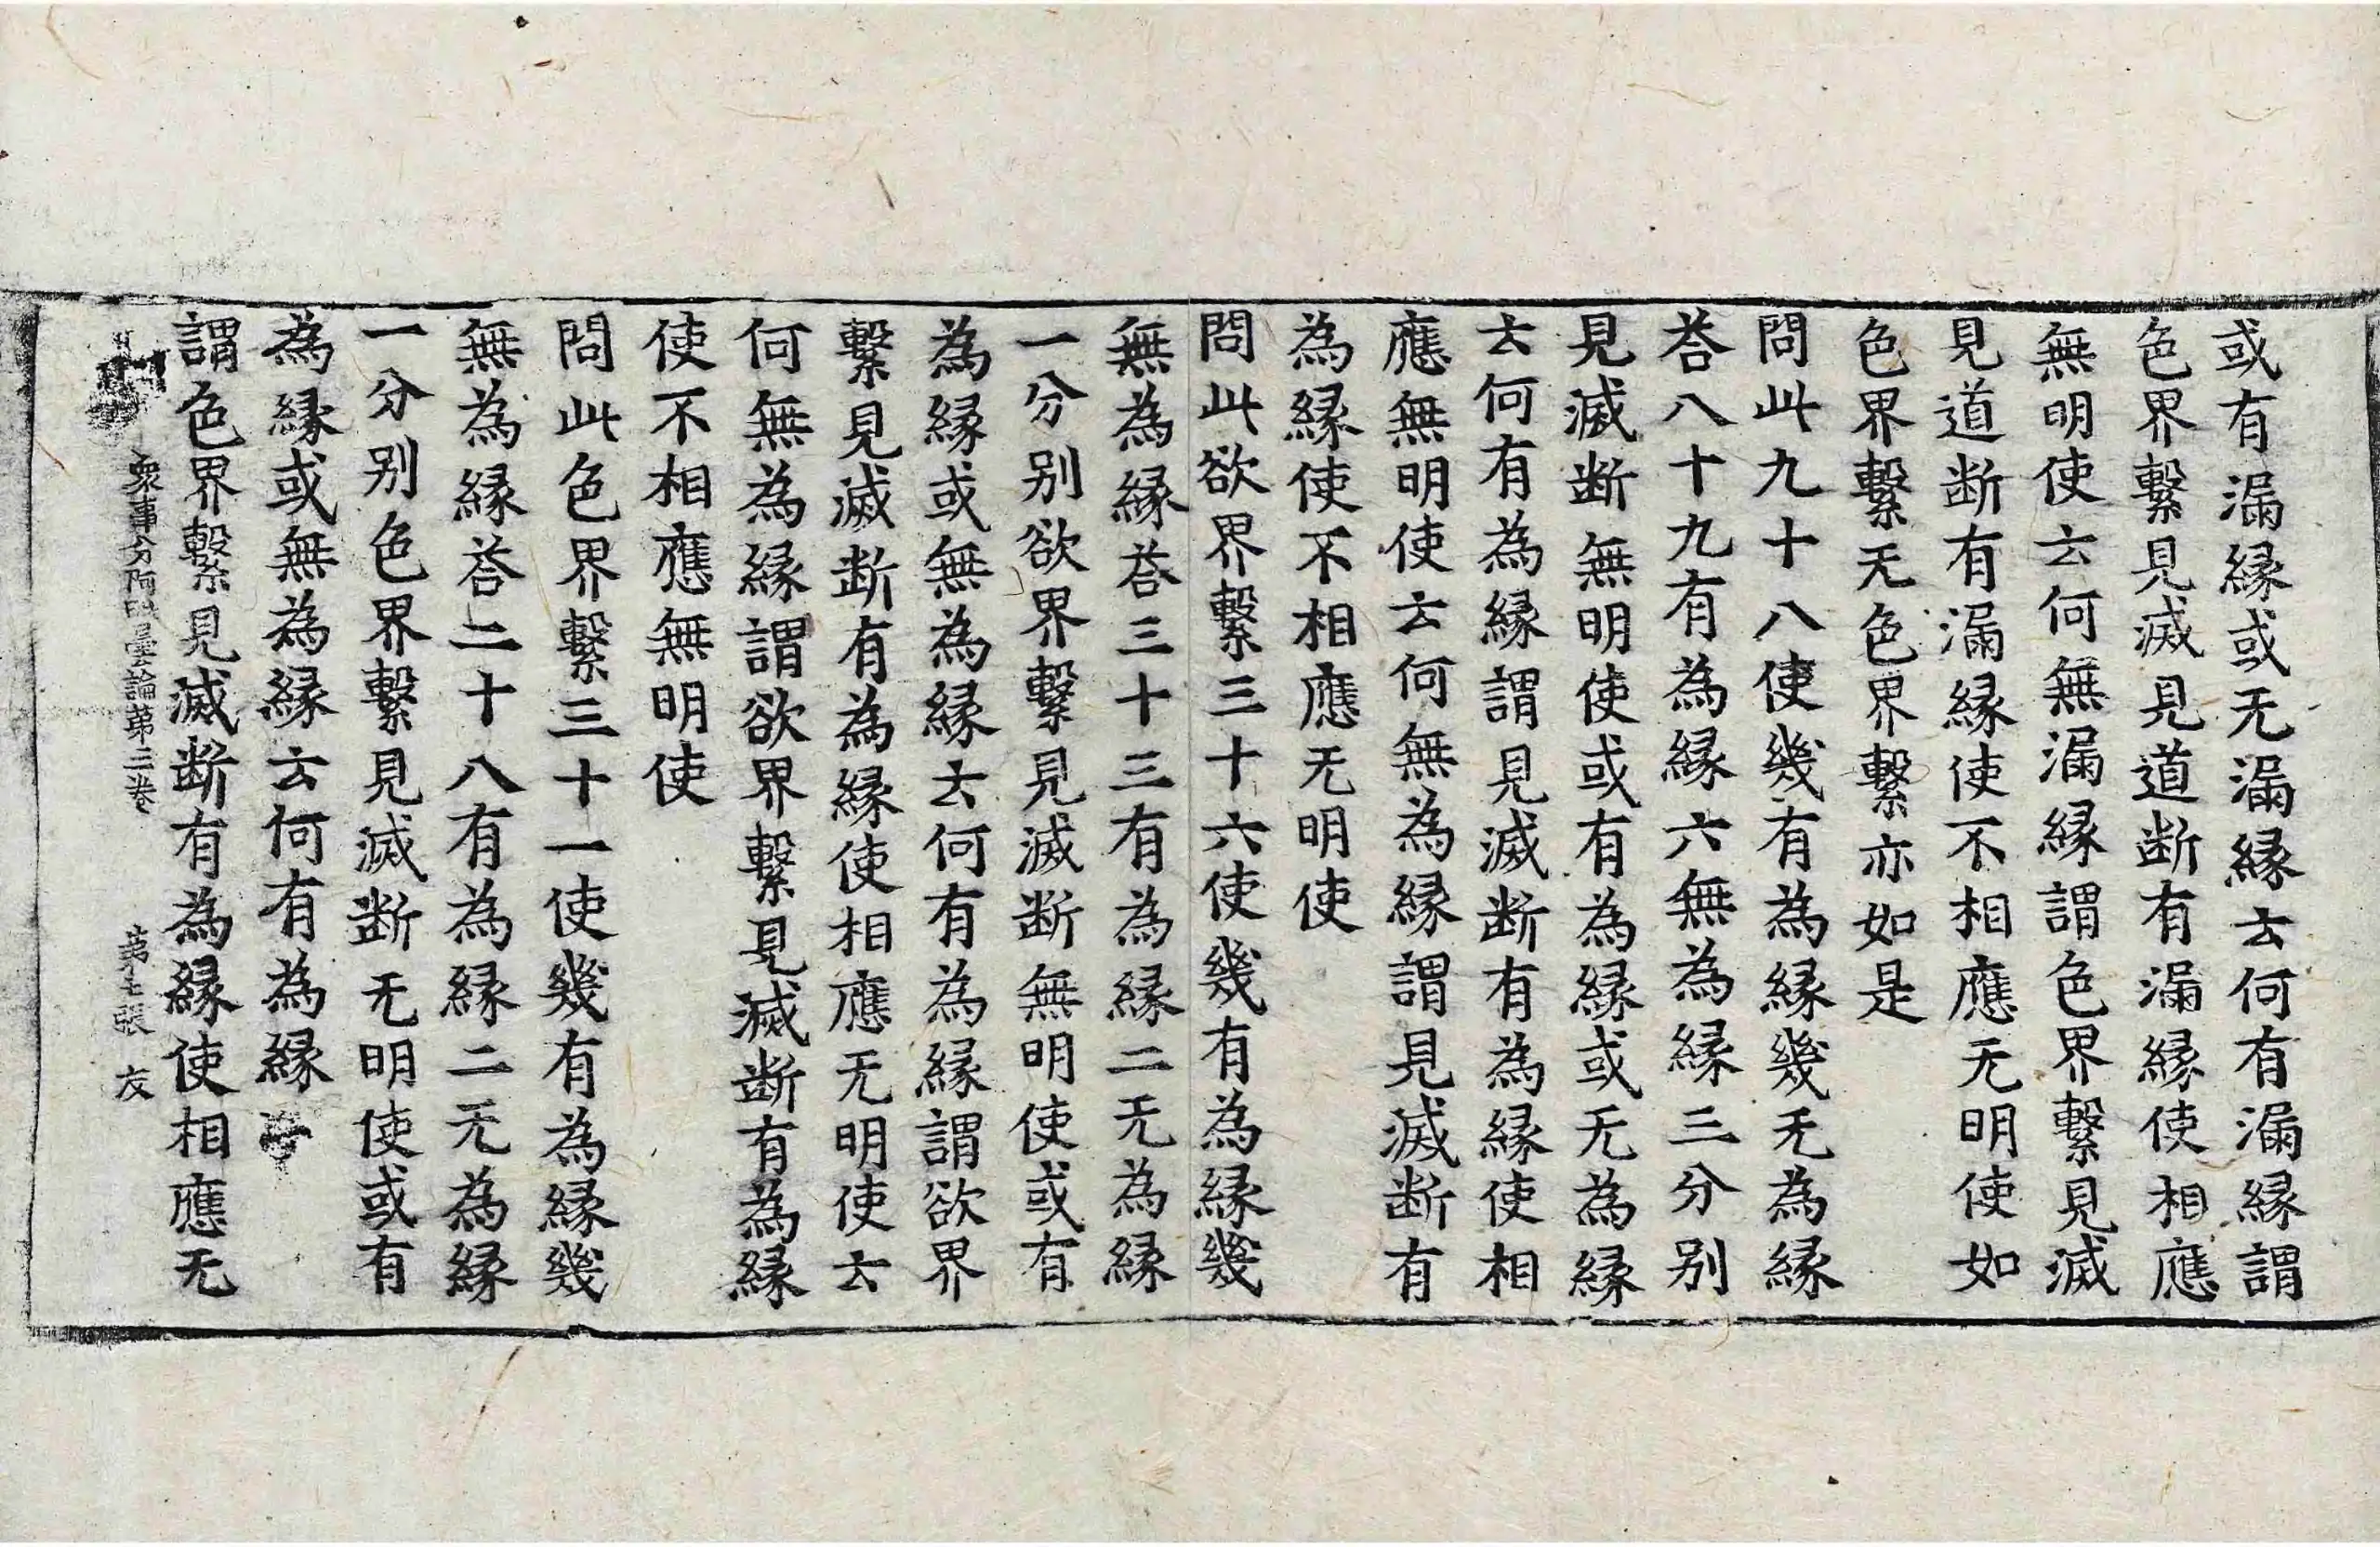 或有漏縁或无漏縁云何有漏縁謂
色界繫見滅見道断有漏縁使相應
無明使云何無漏縁謂色界繫見滅
見道断有漏縁使不相應无明使如
色界繫无色界繫亦如是
問此九十八使幾有為縁幾无為縁
荅八十九有為縁六無為縁三分別
見滅断無明使或有為縁或无為縁
云何有為縁謂見滅断有為縁使相
應無明使云何無為縁謂見滅断有
為縁使不相應无明使
問此欲界繫三十六使幾有為縁幾
無為縁荅三十三有為縁二无為縁
一分別欲界繫見滅断無明使或有
為縁或無為縁云何有為縁謂欲界
繫見滅断有為縁使相應无明使云
何無為縁謂欲界繫見滅断有為縁
使不相應無明使
問此色界繫三十一使幾有為縁幾
無為縁荅二十八有為縁二无為縁
一分別色界繫見滅断无明使或有
為縁或無為縁云何有為縁
謂色界繫見滅断有為縁使相應无
衆事分阿毗曇論第三卷 第七張 友